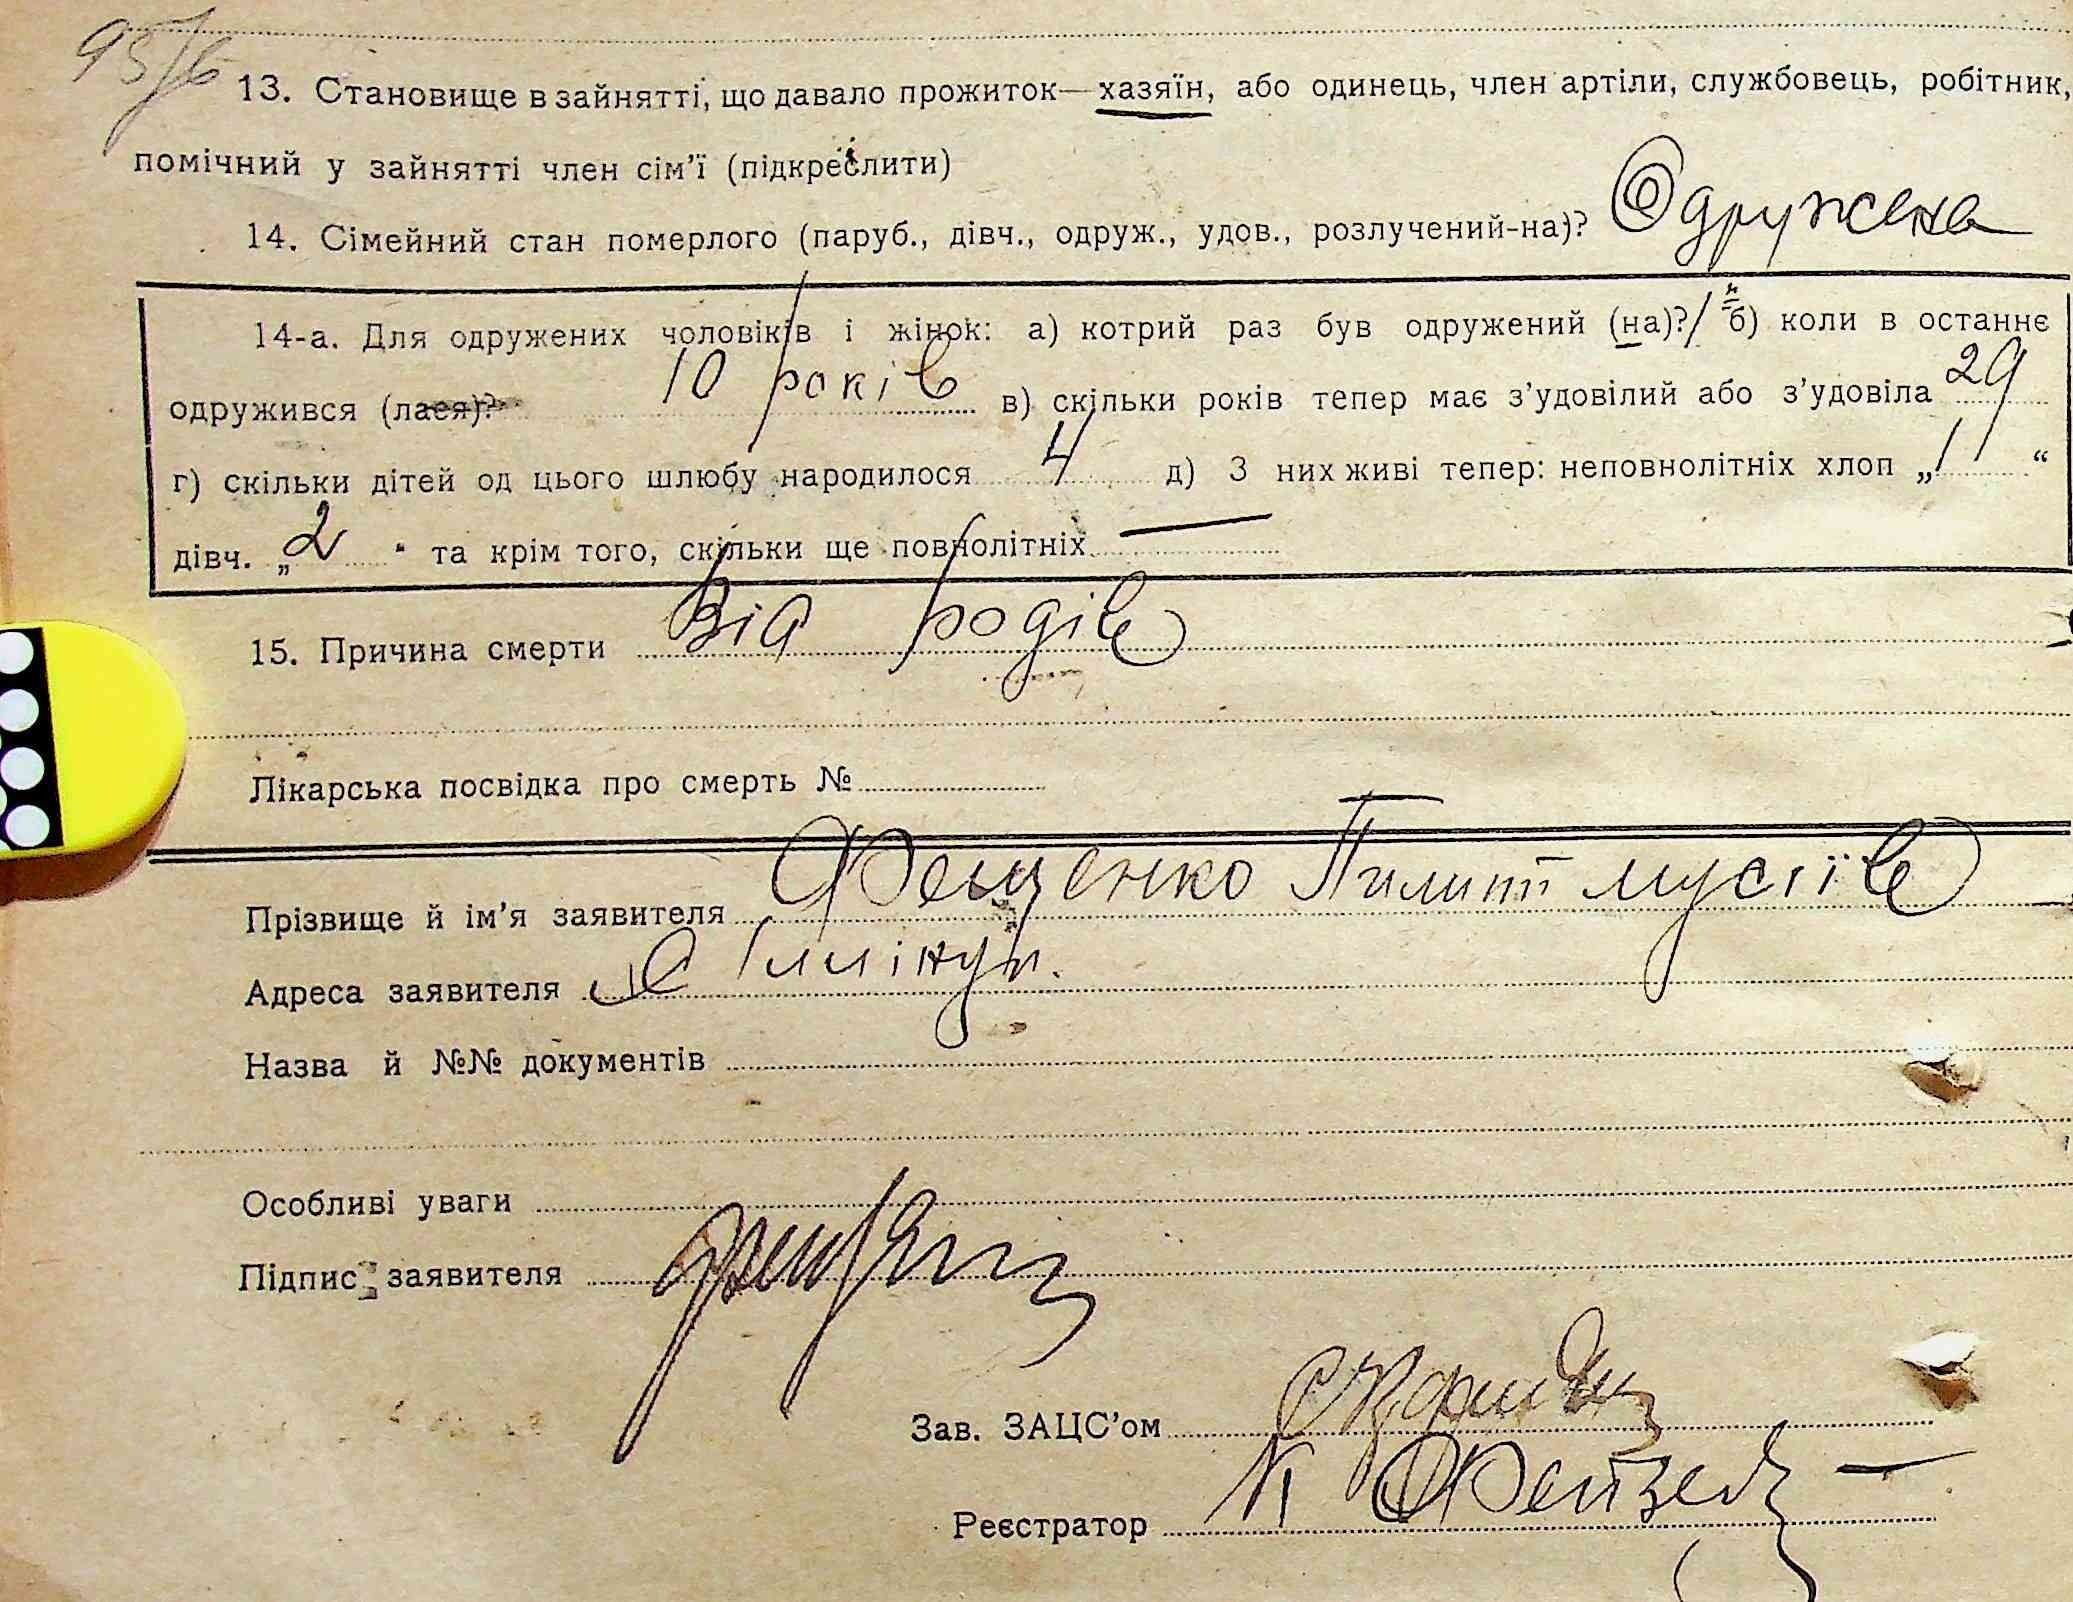 95/6
13. Становище в зайнятті, що давало прожиток—хазяїн, або одинець, член артіли, службовець, робітник,
помічний у зайнятті член сім'ї (підкреслити)
14. Сімейний стан померлого (паруб., дівч., одруж., удов., розлучений-на)? Одружена
14-а. Для одружених чоловіків і жінок: а) котрий раз був одружений (на)? / б) коли в останнє
одружився (лася)? 10 років в) скільки років тепер має з'удовілий або з'удовіла 29
г) скільки дітей од цього шлюбу народилося 4 д) З них живі тепер: неповнолітніх хлоп „1“
дівч. „2“ та крім того, скільки ще повнолітніх —
15. Причина смерти Від родів
Лікарська посвідка про смерть №
Прізвище й ім'я заявителя Фещенко Пилип Мусіїв
Адреса заявителя
Назва й №№ документів
Особливі уваги
Підпис заявителя
Зав. ЗАЦС'ом
Реєстратор